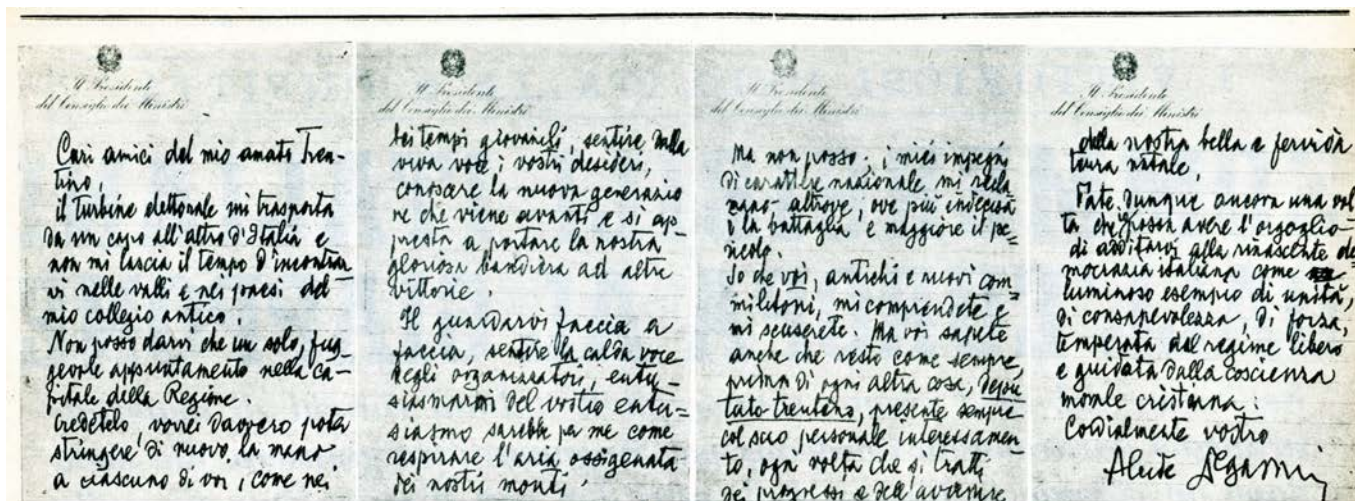 Il Presidente
del Consiglio dei Ministri
Cari amici del mio amato Tren-
tino,
il turbine elettorale mi trasporta
da un capo all'altro d'Italia e
non mi lascia il tempo d'incontrar
vi nelle valli e nei paesi del
mio collegio antico.
Non posso darvi che un solo, fug-
gevole appuntamento nella ca-
pitale della Regione.
Credetelo, vorrei davvero poter
stringere di nuovo la mano
a ciascuno di voi, come nei
Il Presidente
del Consiglio dei Ministri
bei tempi giovanili, sentire dalla
viva voce i vostri desideri,
conoscere la nuova generazio
ne che viene avanti e si ap-
presta a portare la nostra
gloriosa bandiera ad altre
vittorie.
Il guardarvi faccia a
faccia, sentire la calda voce
degli organizzatori, entu-
siasmarmi del vostro entu=
siasmo sarebbe per me come
respirare l'aria ossigenata
dei nostri monti.
Il Presidente
del Consiglio dei Ministri
Ma non posso; i miei impegni
di carattere nazionale mi recla
mano altrove, ove più indecisa
è la battaglia e maggiore il pe=
ricolo.
So che voi, antichi e nuovi com=
militoni, mi comprendete e
mi scuserete. Ma voi sapete
anche che resto come sempre,
prima di ogni altra cosa, depu
tato trentino, presente sempre
col suo personale interessamen
to, ogni volta che si tratti
dei progressi e dell'avvenire
Il Presidente
del Consiglio dei Ministri
della nostra bella e fervida
terra natale.
Fate dunque ancora una vol
ta ch'io possa avere l'orgoglio
di additarvi alla rinascente de
mocrazia italiana come
luminoso esempio di unità,
di consapevolezza, di forza,
temperata dal regime libero
e guidata dalla coscienza
morale cristiana.
Cordialmente vostro
Alcide Degasperi